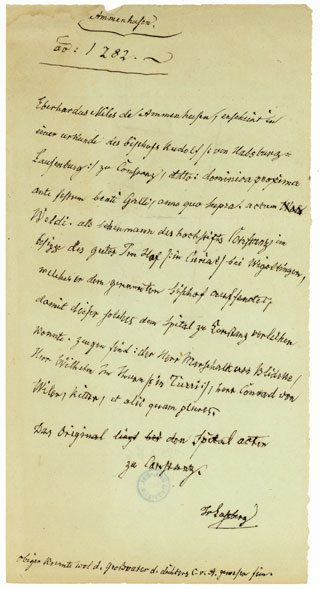 Ammenhusen.
ao: 1282.
Eberhardus Miles de Ammenhusen, erscheint in
einer urkunde des bischofs Rudolf /: von Habsburg=
Laufenburg :/ zu Constanz, dtto: dominica proxima
ante festum beati Galli, anno quo supra. actum
Weldi. als lehenmann des hochstifts Constanz, im
besizze des gutes Im Hof /: in Curia :/ bei Wigoltingen,
welches er dem genannten bischof aufsendet,
damit dieser solches dem Spital zu Constanz verleihen
konnte. zeugen sind: der Herr Marschalk von Blideke,
Herr Wilhelm Im Thurm /: in Turri :/, herr Conrad von
Wiler, Ritter, et alii quam plures.
Das Original liegt bei den Spital acten
zu Constanz.
JvLaßberg
obiger könnte wol d. Großvater d. dichters C. v. A. gewesen sein.